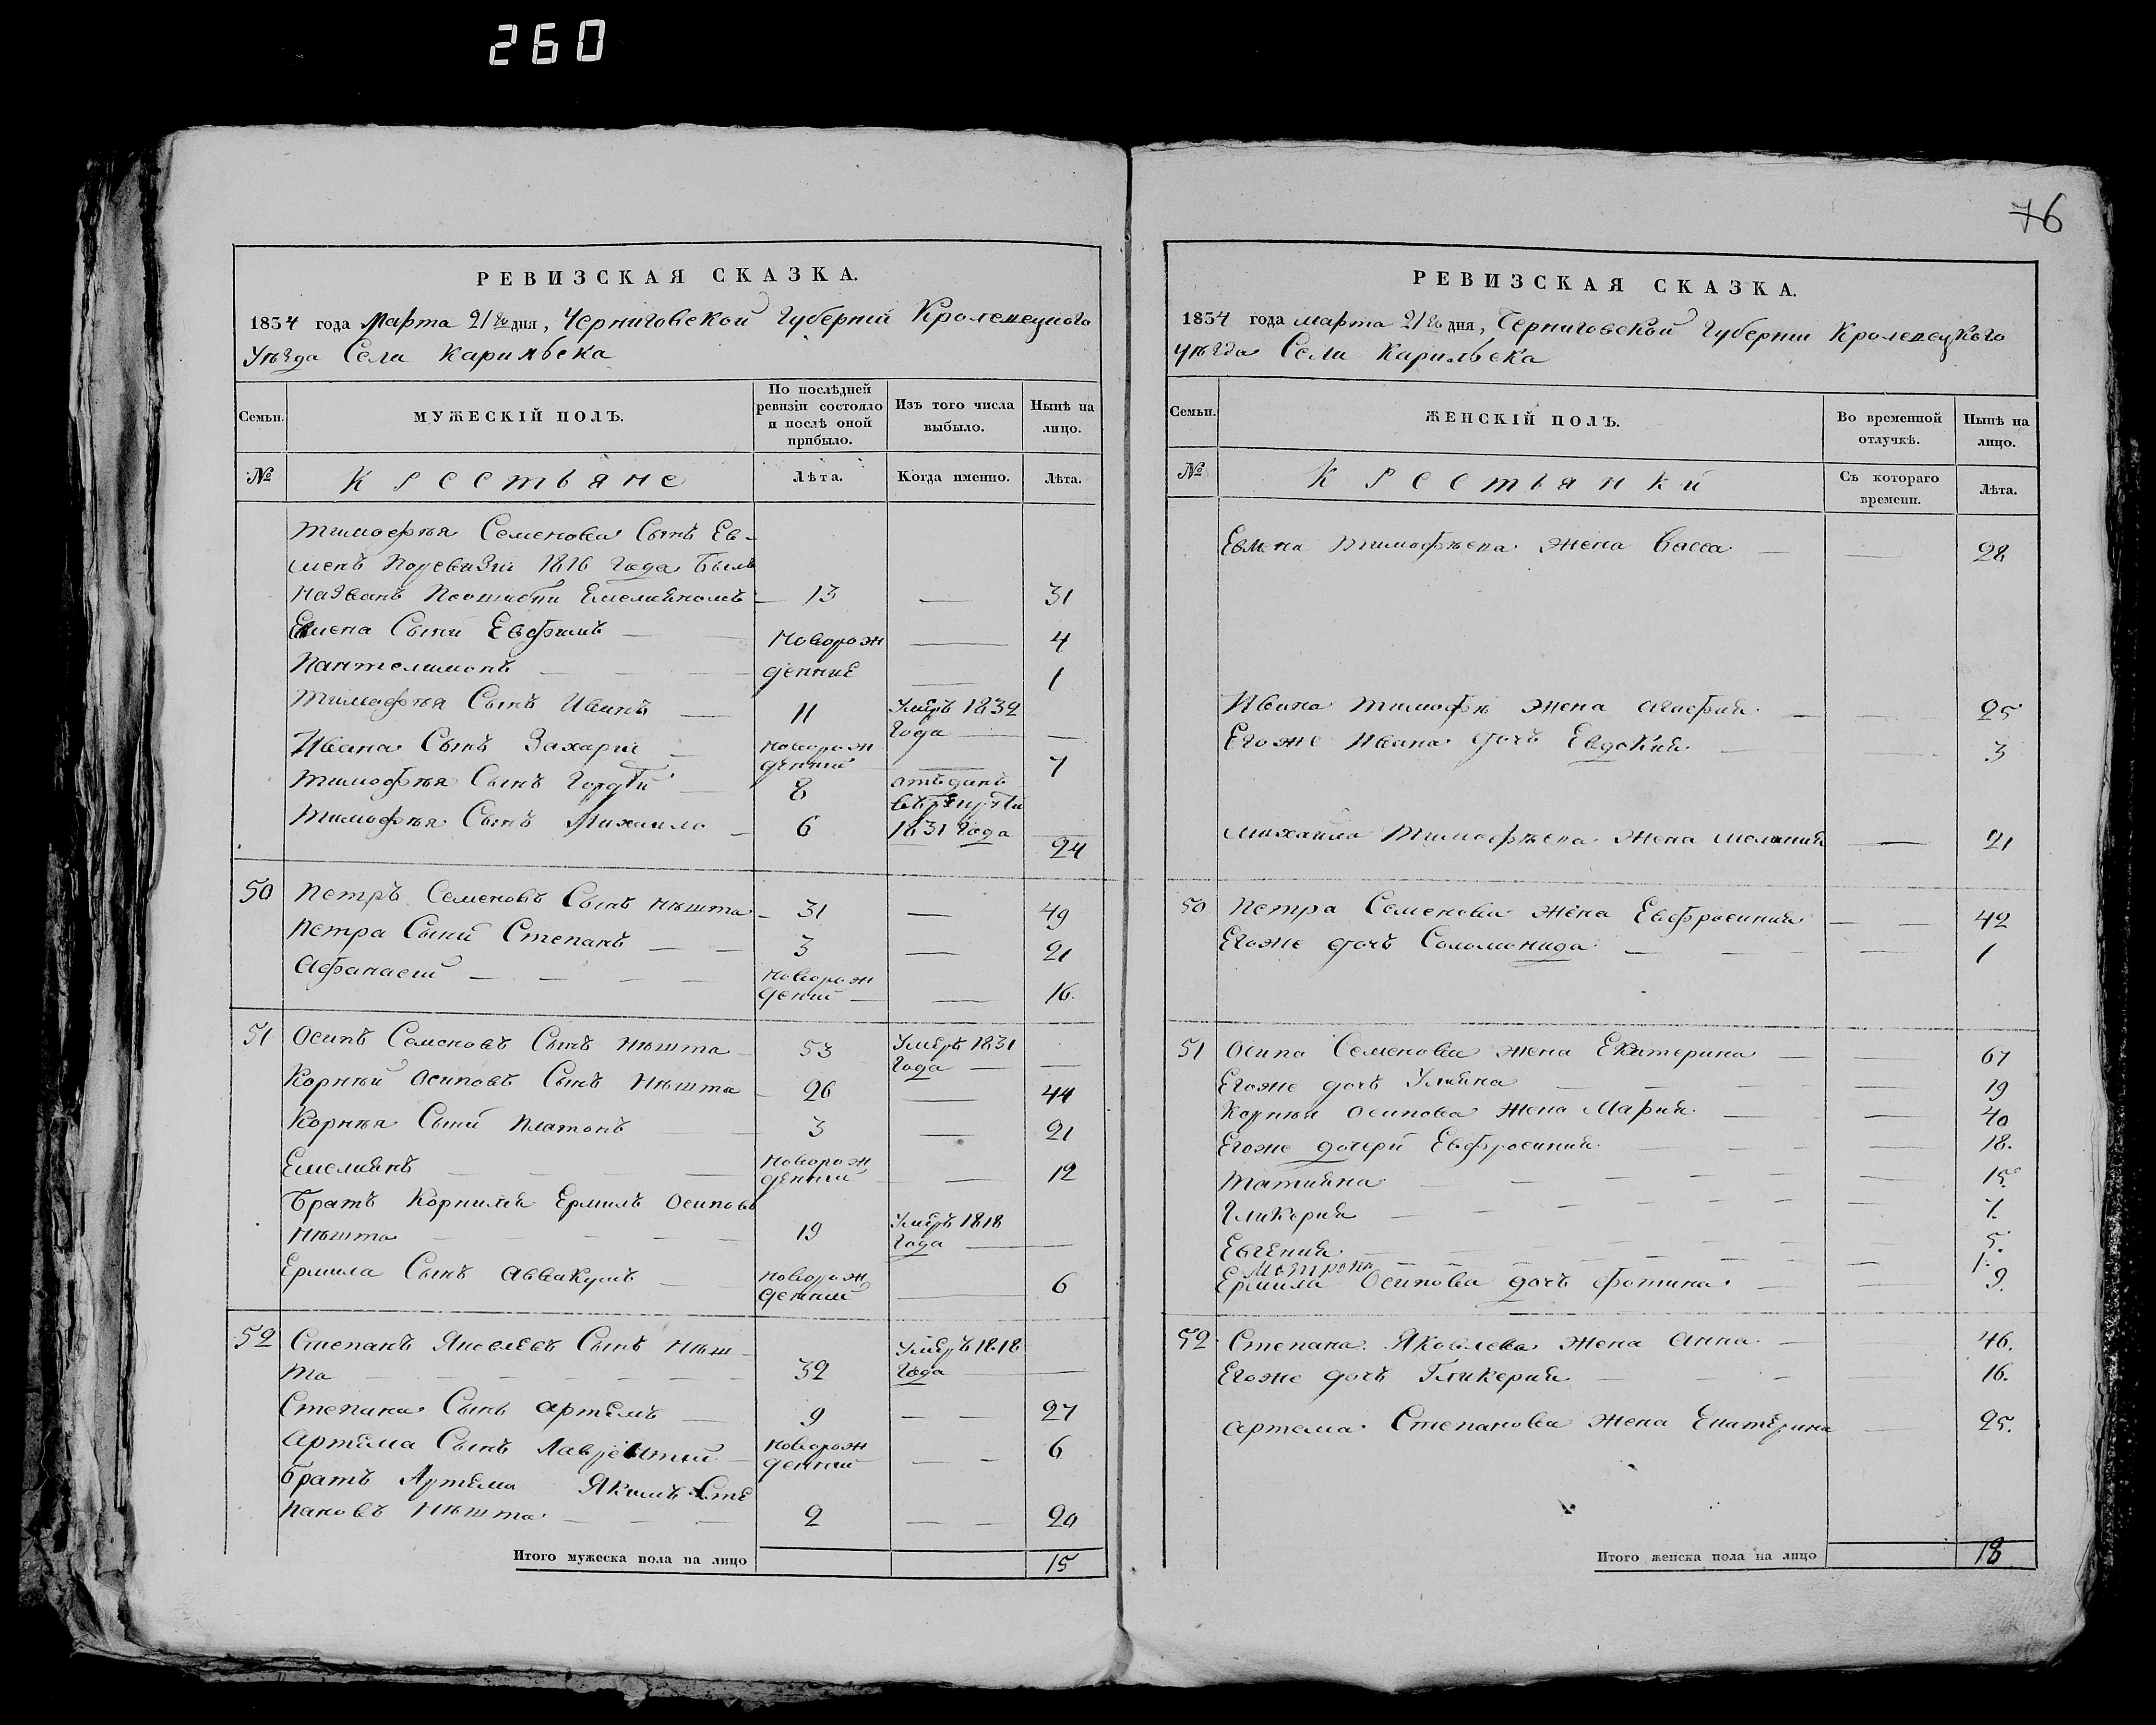 260
РЕВИЗСКАЯ СКАЗКА.
1834 года Марта 21го дня, Черниговской Губерніи Кролевецкого
Уѣзда Села Карильска
Семьи.
МУЖЕСКІЙ ПОЛЪ.
По послѣдней
ревизіи состояло
и послѣ оной
прибыло.
Изъ того числа
выбыло.
Нынѣ на
лицо.
№
Крестьяне
Лѣта.
Когда именно.
Лѣта.
Тимофѣя Семенова Сынъ Ев-
менъ По ревизіи 1816 Года Былъ
Названъ Поошибки Емелияномъ — 13 — 31
Евмена Сыни Евфимъ — Новорож — 4
Пантелимонъ — денние — 1
Тимофѣя Сынъ Иванъ — 11 Умеръ 1832
Года — —
Ивана Сынъ Захарій — новорож
денний — 7
Тимофѣя Сынъ Гордѣй — 8 отъданъ
Тимофѣя Сынъ Михаило — 6 1831 Года — 24
50 Петръ Семеновъ Сынъ Нѣшта — 31 — 49
Петра Сыни Степанъ — — 3 — 21
Афанасій — — — — новорож
дений — — 16.
51 Осипъ Семеновъ Сынъ Нѣшта — 53 Умеръ 1831
Года — —
Корнѣй Осиповъ Сынъ Нѣшта — 26 — 44
Корнѣя Сыни Платонъ — 3 — 21
Емелиянъ — — — новорож
денний — — 12
Братъ Корнилия Ермилъ Осиповъ
Нѣшта — — — — 19 Умеръ 1818
Года — —
Ермила Сынъ Аввакумъ — новорож
денний — 6
52 Степанъ Яковлевъ Сынъ Нѣш-
та — — — — — — 32 Умеръ 1818
Года — —
Степана Сынъ Артемъ — 9 — — 27
Артема Сынъ Лаврентий — новорож
денний — — 6
Братъ Артема Якимъ Сте
пановъ Нѣшта — — — 2 — — 20
Итого мужеска пола на лицо 15
76
РЕВИЗСКАЯ СКАЗКА.
1834 года марта 21го дня, Черниговской Губерніи Кролевецкого
Уѣзда Села Карильска
Семьи.
ЖЕНСКІЙ ПОЛЪ.
Во временной
отлучкѣ.
Нынѣ на
лицо.
№
Крестьянки
Съ котораго
времени.
Лѣта.
Евмена Тимофѣева жена Васса — — 28
Ивана Тимофѣ жена — — 25
Егоже Ивана дочь Евдокия — — 3
Михаила Тимофѣева жена Мелания — 21
50 Петра Семенова жена Евфросиния — — 42
Егоже дочь Соломонида — — — — 1
51 Осипа Семенова жена Екатерина — — 67
Егоже дочь Улияна — — — — 19
Корнѣя Осипова жена Мария — — 40
Егоже дочери Евфросиния — — — 18.
Татияна — — — — — 15.
Гликерия — — — — — 7.
Евгения — — — — — 5.
Матрона — — — — — 1.
Ермила Осипова дочь Фотина — — 9.
52 Степана Яковлева жена Анна — 46.
Егоже дочь Гликерия — — — — 16.
Артема Степанова жена Екатерина — 25.
Итого женска пола на лицо 18